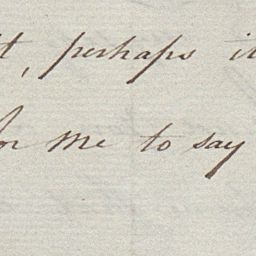 t, perhaps it
for me to say